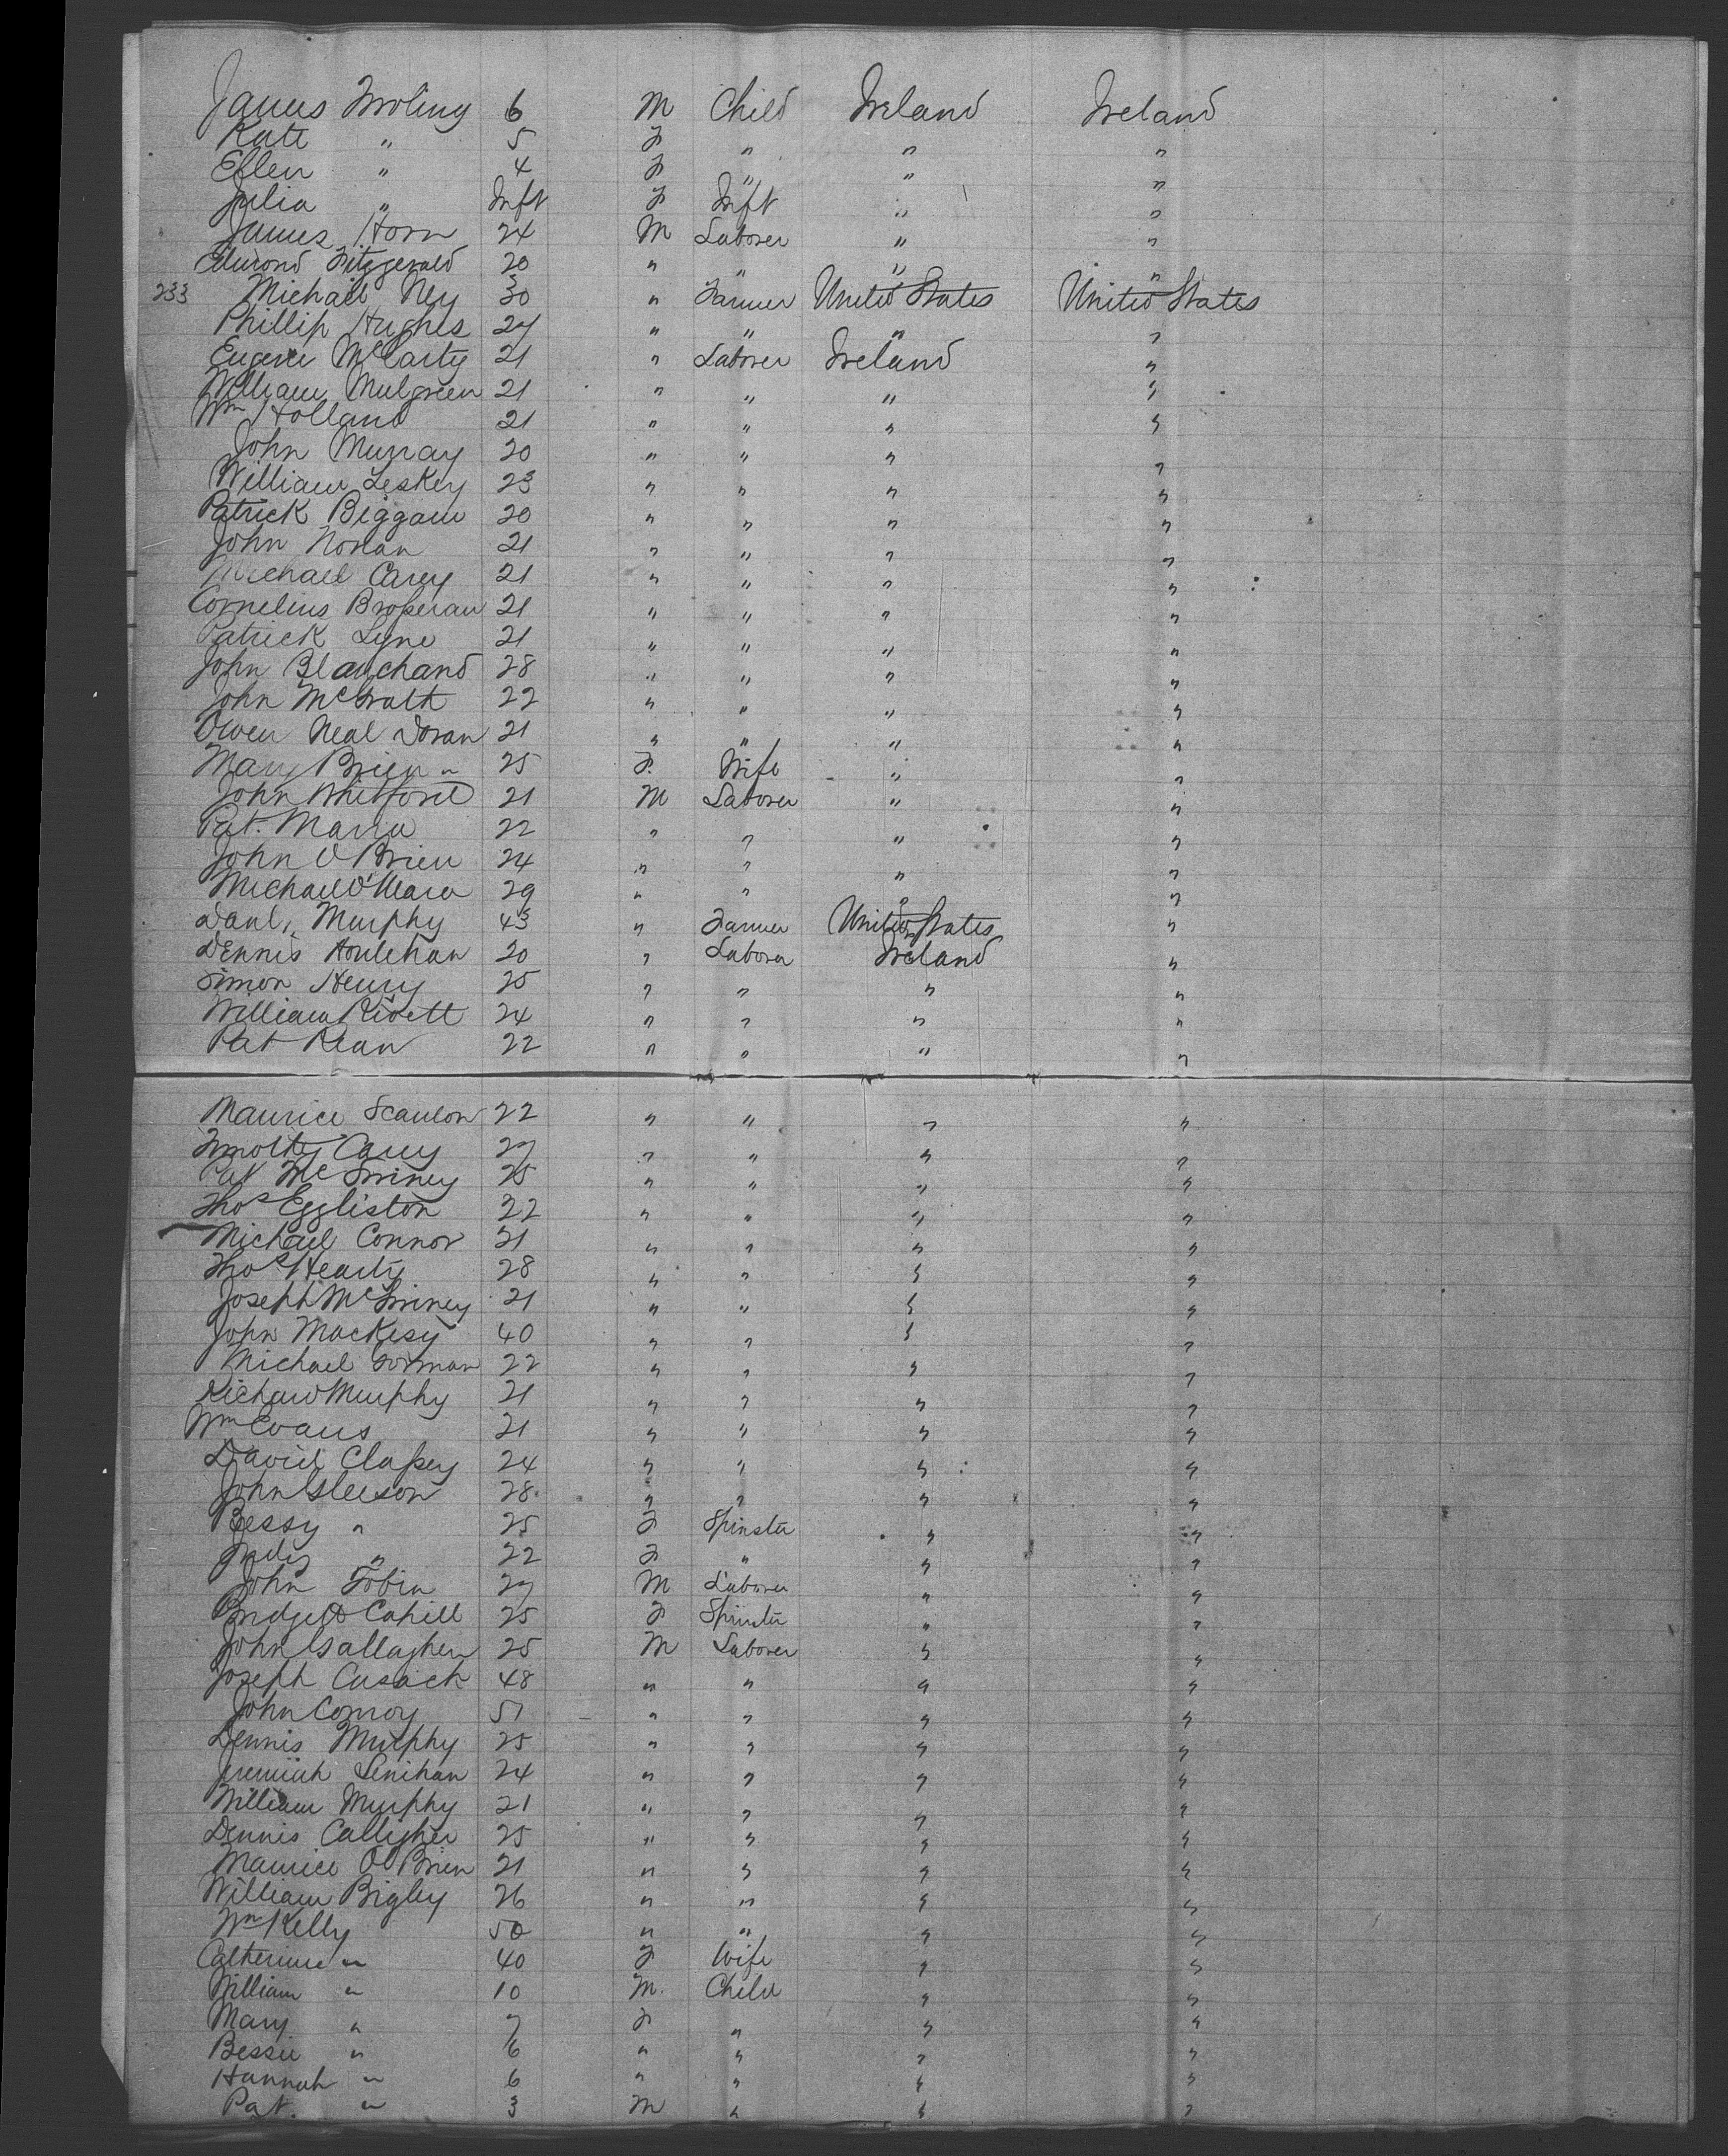 James Troling 6 M Child Ireland Ireland
Kate " 5 F " " "
Ellen " 4 F " " "
Julia " Inft F Inft " "
James Horn 24 M Laborer " "
Edmond Fitzgerald 20 " " " "
233 Michael Ney 30 " Farmer United States United States
Phillip Hughes 27 " " " "
Eugene McCarty 21 " Laborer Ireland "
William Mulgreen 21 " " " "
Wm Holland 21 " " " "
John Murray 20 " " " "
William Leskey 23 " " " "
Patrick Biggam 20 " " " "
John Nonan 21 " " " "
Michael Carey 21 " " " "
Cornelius Broserau 21 " " " "
Patrick Lyne 21 " " " "
John Blanchand 28 " " " "
John McGrath 22 " " " "
Owen Neal Doran 21 " " " "
Mary Brien " 25 F. Wife " "
John Whitford 21 M Laborer " "
Pat. Marra 22 " " " "
John O'Brien 24 " " " "
Michael O'Meara 29 " " " "
Danl. Murphy 43 " Farmer United States "
Dennis Houlehan 20 " Laborer Ireland "
Simon Henry 25 " " " "
William Rivett 24 " " " "
Pat Kean 22 " " " "
Maurice Scanlon 22 " " " "
Timothy Carey 27 " " " "
Pat McSwiney 25 " " " "
Thos Eggliston 22 " " " "
Michael Connor 21 " " " "
Thos Hearty 28 " " " "
Joseph McSwiney 21 " " " "
John Mackesy 40 " " " "
Michael Gorman 22 " " " "
Richard Murphy 21 " " " "
Wm Evans 21 " " " "
David Clasey 24 " " " "
John Gleeson 28 " " " "
Bessy " 25 F Spinster " "
Judy " 22 F " " "
John Tobin 27 M Laborer " "
Bridget Cahill 25 F Spinster " "
John Gallagher 25 M Laborer " "
Joseph Cusack 48 " " " "
John Conroy 51 " " " "
Dennis Murphy 25 " " " "
Jeremiah Linihan 24 " " " "
William Murphy 21 " " " "
Dennis Calligher 25 " " " "
Maurice O'Brien 21 " " " "
William Bigley 26 " " " "
Wm Kelly 50 " " " "
Catherine " 40 F Wife " "
William " 10 M. Child " "
Mary " 7 F " " "
Bessie " 6 " " " "
Hannah " 6 " " " "
Pat. " 3 M " " "